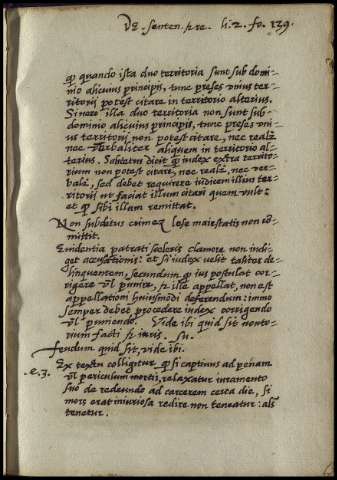 De senten. et re li. 2. fo. 129.
qꝫ quando ista duo territoria sunt sub domi-
nio alicuius principis, tunc preses unius ter-
ritorii potest citare in territorio alterius.
Si vero illa duo territoria non sunt sub
dominio alicuius principis, tunc preses uni-
us territorii non potest citare, nec realr
nec verbaliter aliquem in territorio al-
terius. dicit qꝫ iudex extra territo-
rium non potest citare, nec realr, nec ver-
balr, sed debet requirere iudicem illius ter-
ritorii ut faciat illum citari quem vult:
et qꝫ sibi illum remittat.
Non subditus crimen lese maiestatis non co-
mittit.
Evidentia patrati sceleris clamore non indi-
get accusationis: et si iudex velit tales de-
linquentem, secundum qꝫ ius postulat cor-
rigere vel punire, et ille appellat, non est
appellationi huiusmodi deferendum: immo
semper debet procedere iudex corrigendo
vel puniendo. Vide ibi quid sit noto-
rium facti et iuris. su.
feudum quid sit, vide ibi.
e. 3. Ex textu colligitur qꝫ si captivus ad penam
vel periculum mortis, relaxatur iuramento
suo de redeundo ad carcerem certa die, si
mors erat iniuriosa redire non teneatur: als
tenetur.